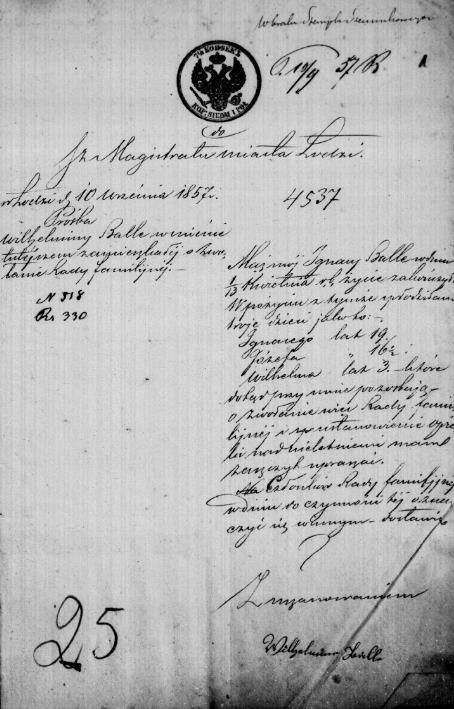 w braku stempla
10/9 57 R
7½ KOPIEEK
do
Jz. Magistratu miasta Łodzi.
w Łodzi d. 10 Września 1857 r.
4537
Prośba
Wilhelminy Balle w mieście
tutejszem zamieszkałej o zwo-
łanie Rady familijnej.—
N 518
Rs 330
Mąż mój Ignacy Balle w dniu
1/13 Kwietnia r. b. życie zakończył.
W pożyciu z tymże spłodziłam
troje dzieci jako to:—
Ignacego lat 19
Józefa " 16
Wilhelma lat 3.— które
dotąd przy mnie pozostają—
o zwołanie więc Rady fami-
lijnej i postanowienie opie-
ki nad nieletniemi mam
zaszczyt upraszać.
Na Członków Rady familijnej
w dniu do czynności tej ozna-
czyć się mianym— dostawię
Z uszanowaniem
Wilhelmina Balle
25